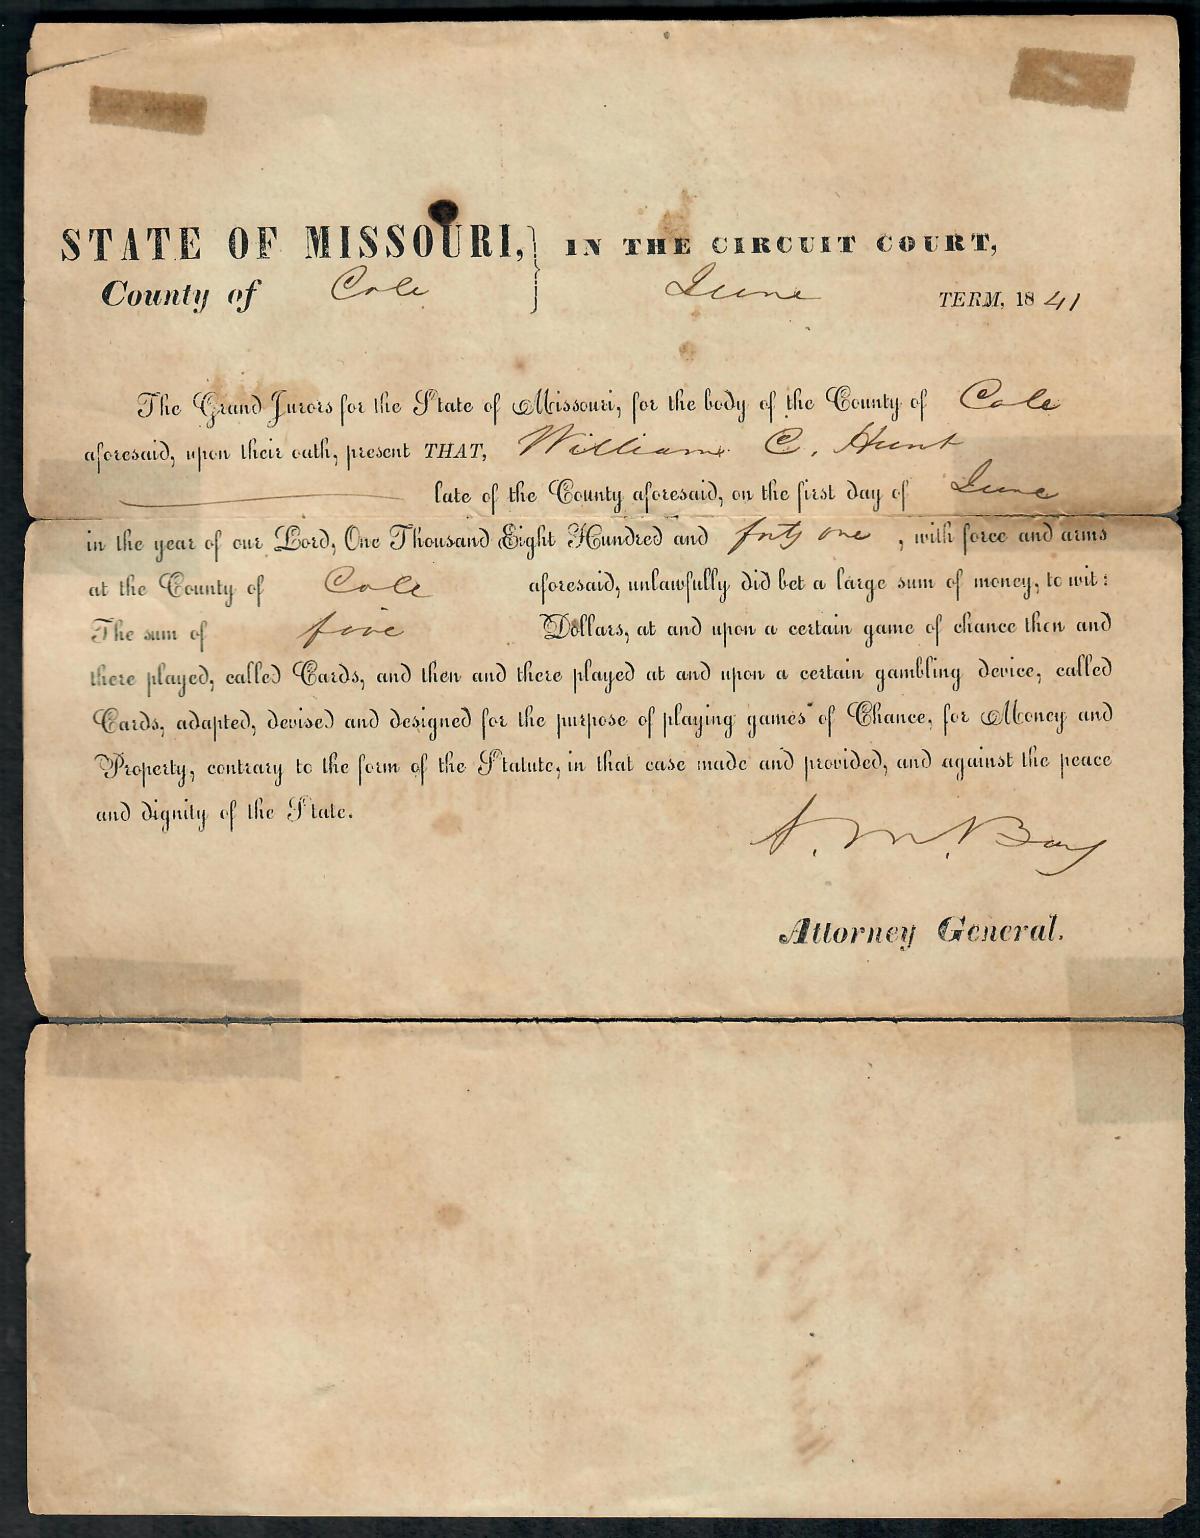 STATE OF MISSOURI, } IN THE CIRCUIT COURT,
County of Cole June TERM, 1841
The Grand Jurors for the State of Missouri, for the body of the County of Cole
aforesaid, upon their oath, present THAT, William C. Hunt
late of the County aforesaid, on the first day of June
in the year of our Lord, One Thousand Eight Hundred and forty one , with force and arms
at the County of Cole aforesaid, unlawfully did bet a large sum of money, to wit:
The sum of five Dollars, at and upon a certain game of chance then and
there played, called Cards, and then and there played at and upon a certain gambling device, called
Cards, adapted, devised and designed for the purpose of playing games of Chance, for Money and
Property, contrary to the form of the Statute, in that case made and provided, and against the peace
and dignity of the State.
S. M. Bay
Attorney General.